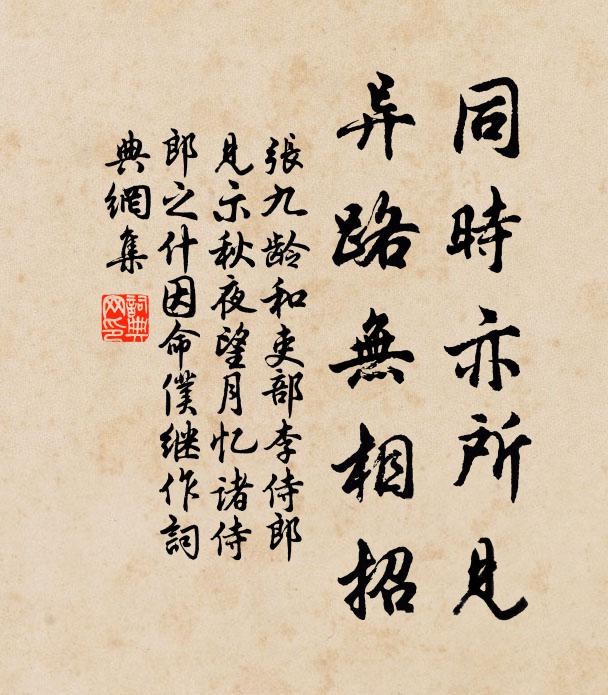 同時亦所見
异路無相招
張九龄和吏部李侍郎
見示秋夜望月忆諸侍
郎之什因命僕继作詞
典網集
詞典
网印